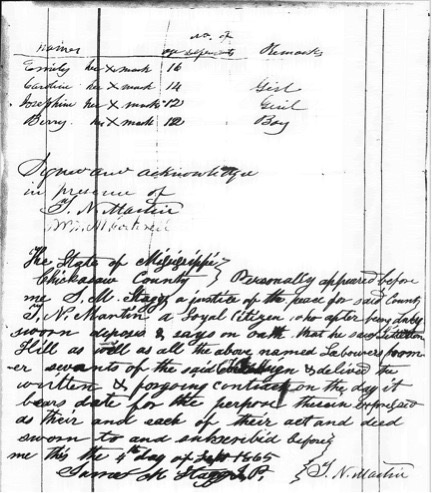 no. of
names age years Remarks
Emily her X mark 16
Caroline her X mark 14 Girl
Josephine her X mark 12 Girl
Berry her X mark 12 Boy
Signed and acknowledge
in presence of
T. N. Martin
Wm. M
The State of Mississippi
Chickasaw County } Personally appeared before
me S. M. Stagg a justice of the peace for said County
T. N. Martin a Loyal Citizen who after being duly
sworn deposes & says on oath that he saw
Hill as well as all the above named Labourers
er servants of the said sign & delived the
written & forgoing contract on the day it
bears date for the perpose therein expressed
as their and each of their act and deed
sworn to and subscribed before
me this the 4th day of Sept 1865
James M Stagg J.P. } T. N. Martin